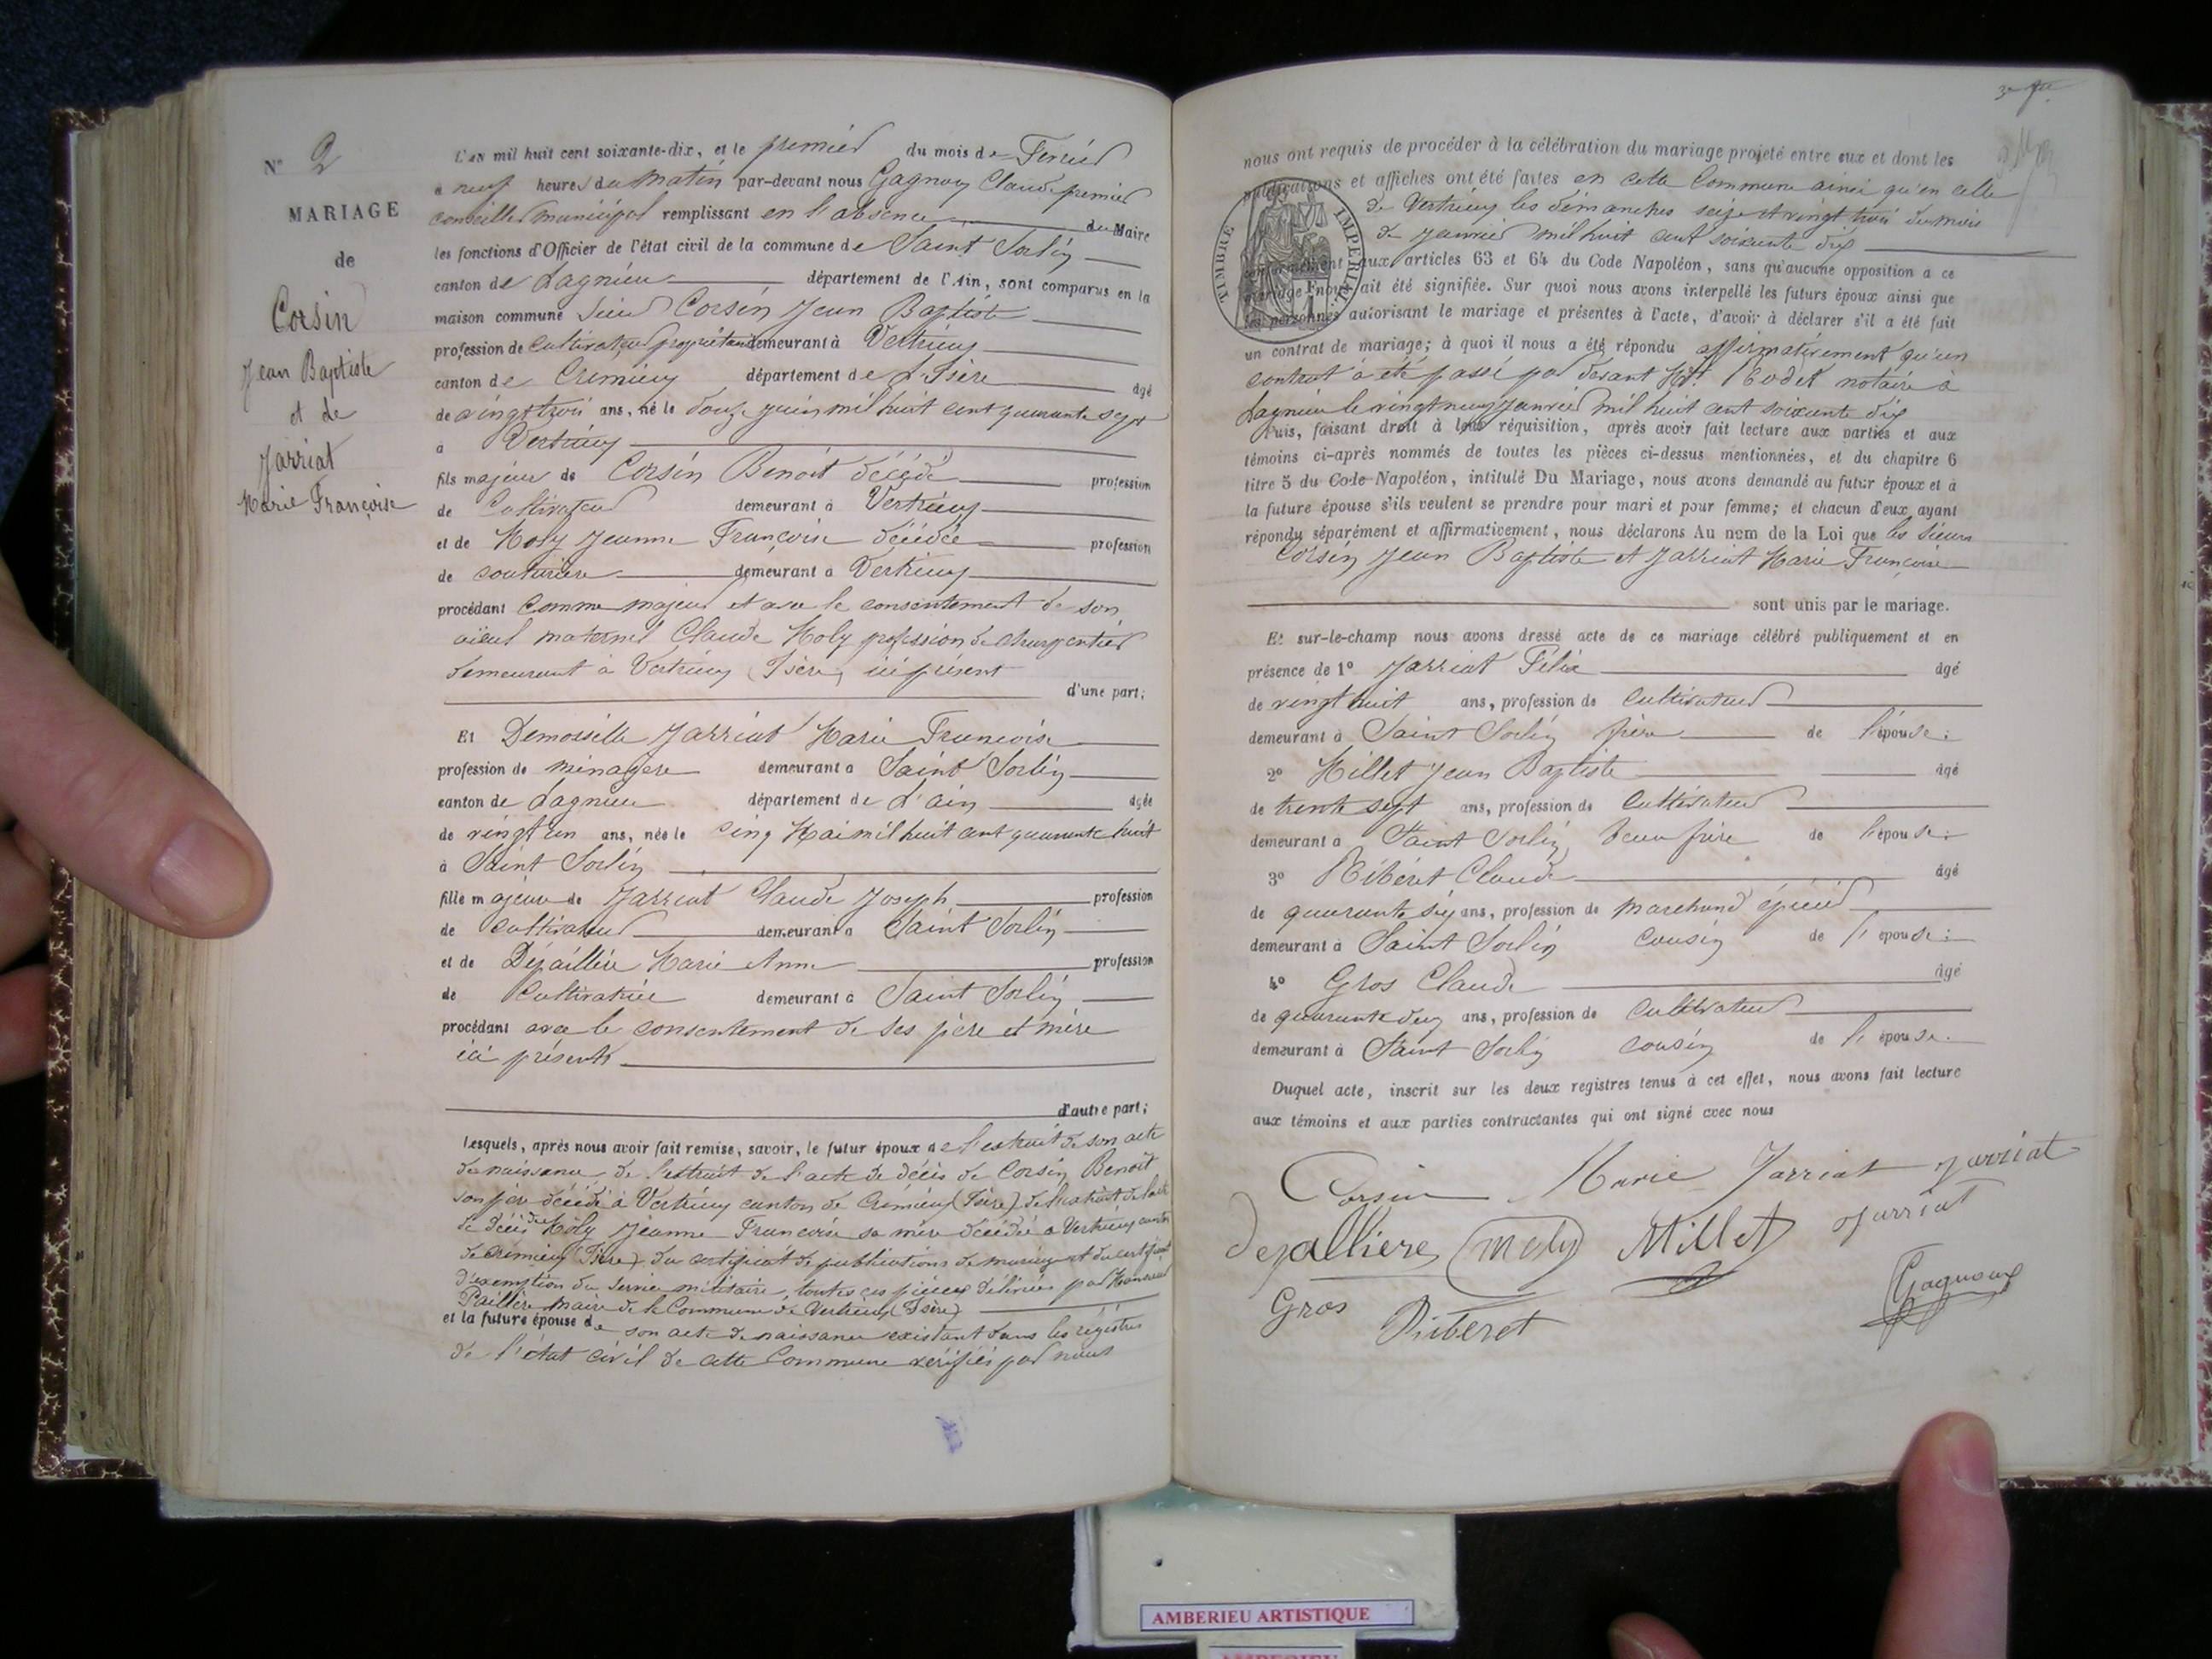 N° 2
MARIAGE
de
Corsin
Jean Baptiste
et de
Jarriat
Marie Françoise
L'an mil huit cent soixante-dix, et le premier du mois de Fevrier
à neuf heures du Matin par-devant nous Gagnoux Claude premier
conseiller municipal remplissant en l'absence du Maire
les fonctions d'Officier de l'état civil de la commune de Saint Sorlin
canton de Lagnieu département de l'Ain, sont comparus en la
maison commune Sieur Corsin Jean Baptiste
profession de cultivateur propriétaire demeurant à Vertrieu
canton de Cremieu département de l'Isère âgé
de vingt trois ans, né le douze juin mil huit cent quarante sept
à Vertrieu
fils majeur de Corsin Benoit décédé profession
de Cultivateur demeurant à Vertrieu
et de Moly Jeanne Françoise décédée profession
de couturière demeurant à Vertrieu
procédant comme majeur et avec le consentement de son
aïeul maternel Claude Moly profession de charpentier
demeurant à Vertrieu (Isère) ici présent
d'une part;
Et Demoiselle Jarriat Marie Françoise
profession de ménagère demeurant à Saint Sorlin
canton de Lagnieu département de L'ain âgée
de vingt un ans, née le cinq Mai mil huit cent quarante huit
à Saint Sorlin
fille majeure de Jarriat Claude Joseph profession
de Cultivateur demeurant à Saint Sorlin
et de Dépaillière Marie Anne profession
de Cultivatrice demeurant à Saint Sorlin
procédant avec le consentement de ses père et mère
ici présents
d'autre part;
Lesquels, après nous avoir fait remise, savoir, le futur époux de l'extrait de son acte
de naissance de l'extrait de l'acte de décès de Corsin Benoit
son père décédé à Vertrieu canton de Crémieu (Isère) de l'extrait de l'acte
de décès de Moly Jeanne Françoise sa mère décédée à Vertrieu canton
de Crémieu (Isère) du certificat de publications de mariage et du certificat
d'exemption du Service militaire, toutes ces pièces délivrées par Monsieur
Paillère maire de la Commune de Vertrieu (Isère)
et la future épouse de son acte de naissance existant dans les régistres
de l'état civil de cette Commune vérifiés par nous
nous ont requis de procéder à la célébration du mariage projeté entre eux et dont les
publications et affiches ont été faites en cette Commune ainsi qu'en celle
de Vertrieu les dimanches seize et vingt trois du mois
de janvier mil huit cent soixante dix
TIMBRE IMPÉRIAL
conformément aux articles 63 et 64 du Code Napoléon, sans qu'aucune opposition a ce
mariage nous ait été signifiée. Sur quoi nous avons interpellé les futurs époux ainsi que
les personnes autorisant le mariage et présentes à l'acte, d'avoir à déclarer s'il a été fait
un contrat de mariage; à quoi il nous a été répondu affirmativement qu'un
contrat a été passé par devant notaire à
Lagnieu le vingt neuf janvier mil huit cent soixante dix
Puis, faisant droit à leur réquisition, après avoir fait lecture aux parties et aux
témoins ci-après nommés de toutes les pièces ci-dessus mentionnées, et du chapitre 6
titre 5 du Code Napoléon, intitulé Du Mariage, nous avons demandé au futur époux et à
la future épouse s'ils veulent se prendre pour mari et pour femme; et chacun d'eux ayant
répondu séparément et affirmativement, nous déclarons Au nom de la Loi que les Sieurs
Corsin Jean Baptiste et Jarriat Marie Françoise
sont unis par le mariage.
Et sur-le-champ nous avons dressé acte de ce mariage célébré publiquement et en
présence de 1° Jarriat Félix âgé
de vingt huit ans, profession de Cultivateur
demeurant à Saint Sorlin frère de l'épouse.
2° Millet Jean Baptiste âgé
de trente sept ans, profession de Cultivateur
demeurant à Saint Sorlin beau frère de l'épouse.
3° Ribéret Claude âgé
de quarante six ans, profession de marchand épicier
demeurant à Saint Sorlin cousin de l'épouse.
4° Gros Claude âgé
de quarante deux ans, profession de Cultivateur
demeurant à Saint Sorlin cousin de l'épouse.
Duquel acte, inscrit sur les deux registres tenus à cet effet, nous avons fait lecture
aux témoins et aux parties contractantes qui ont signé avec nous
Corsin Marie Jarriat Jarriat
Depallière Moly Millet Jarriat
Gros Ribéret Gagnoux
AMBERIEU ARTISTIQUE
AMBERIEU